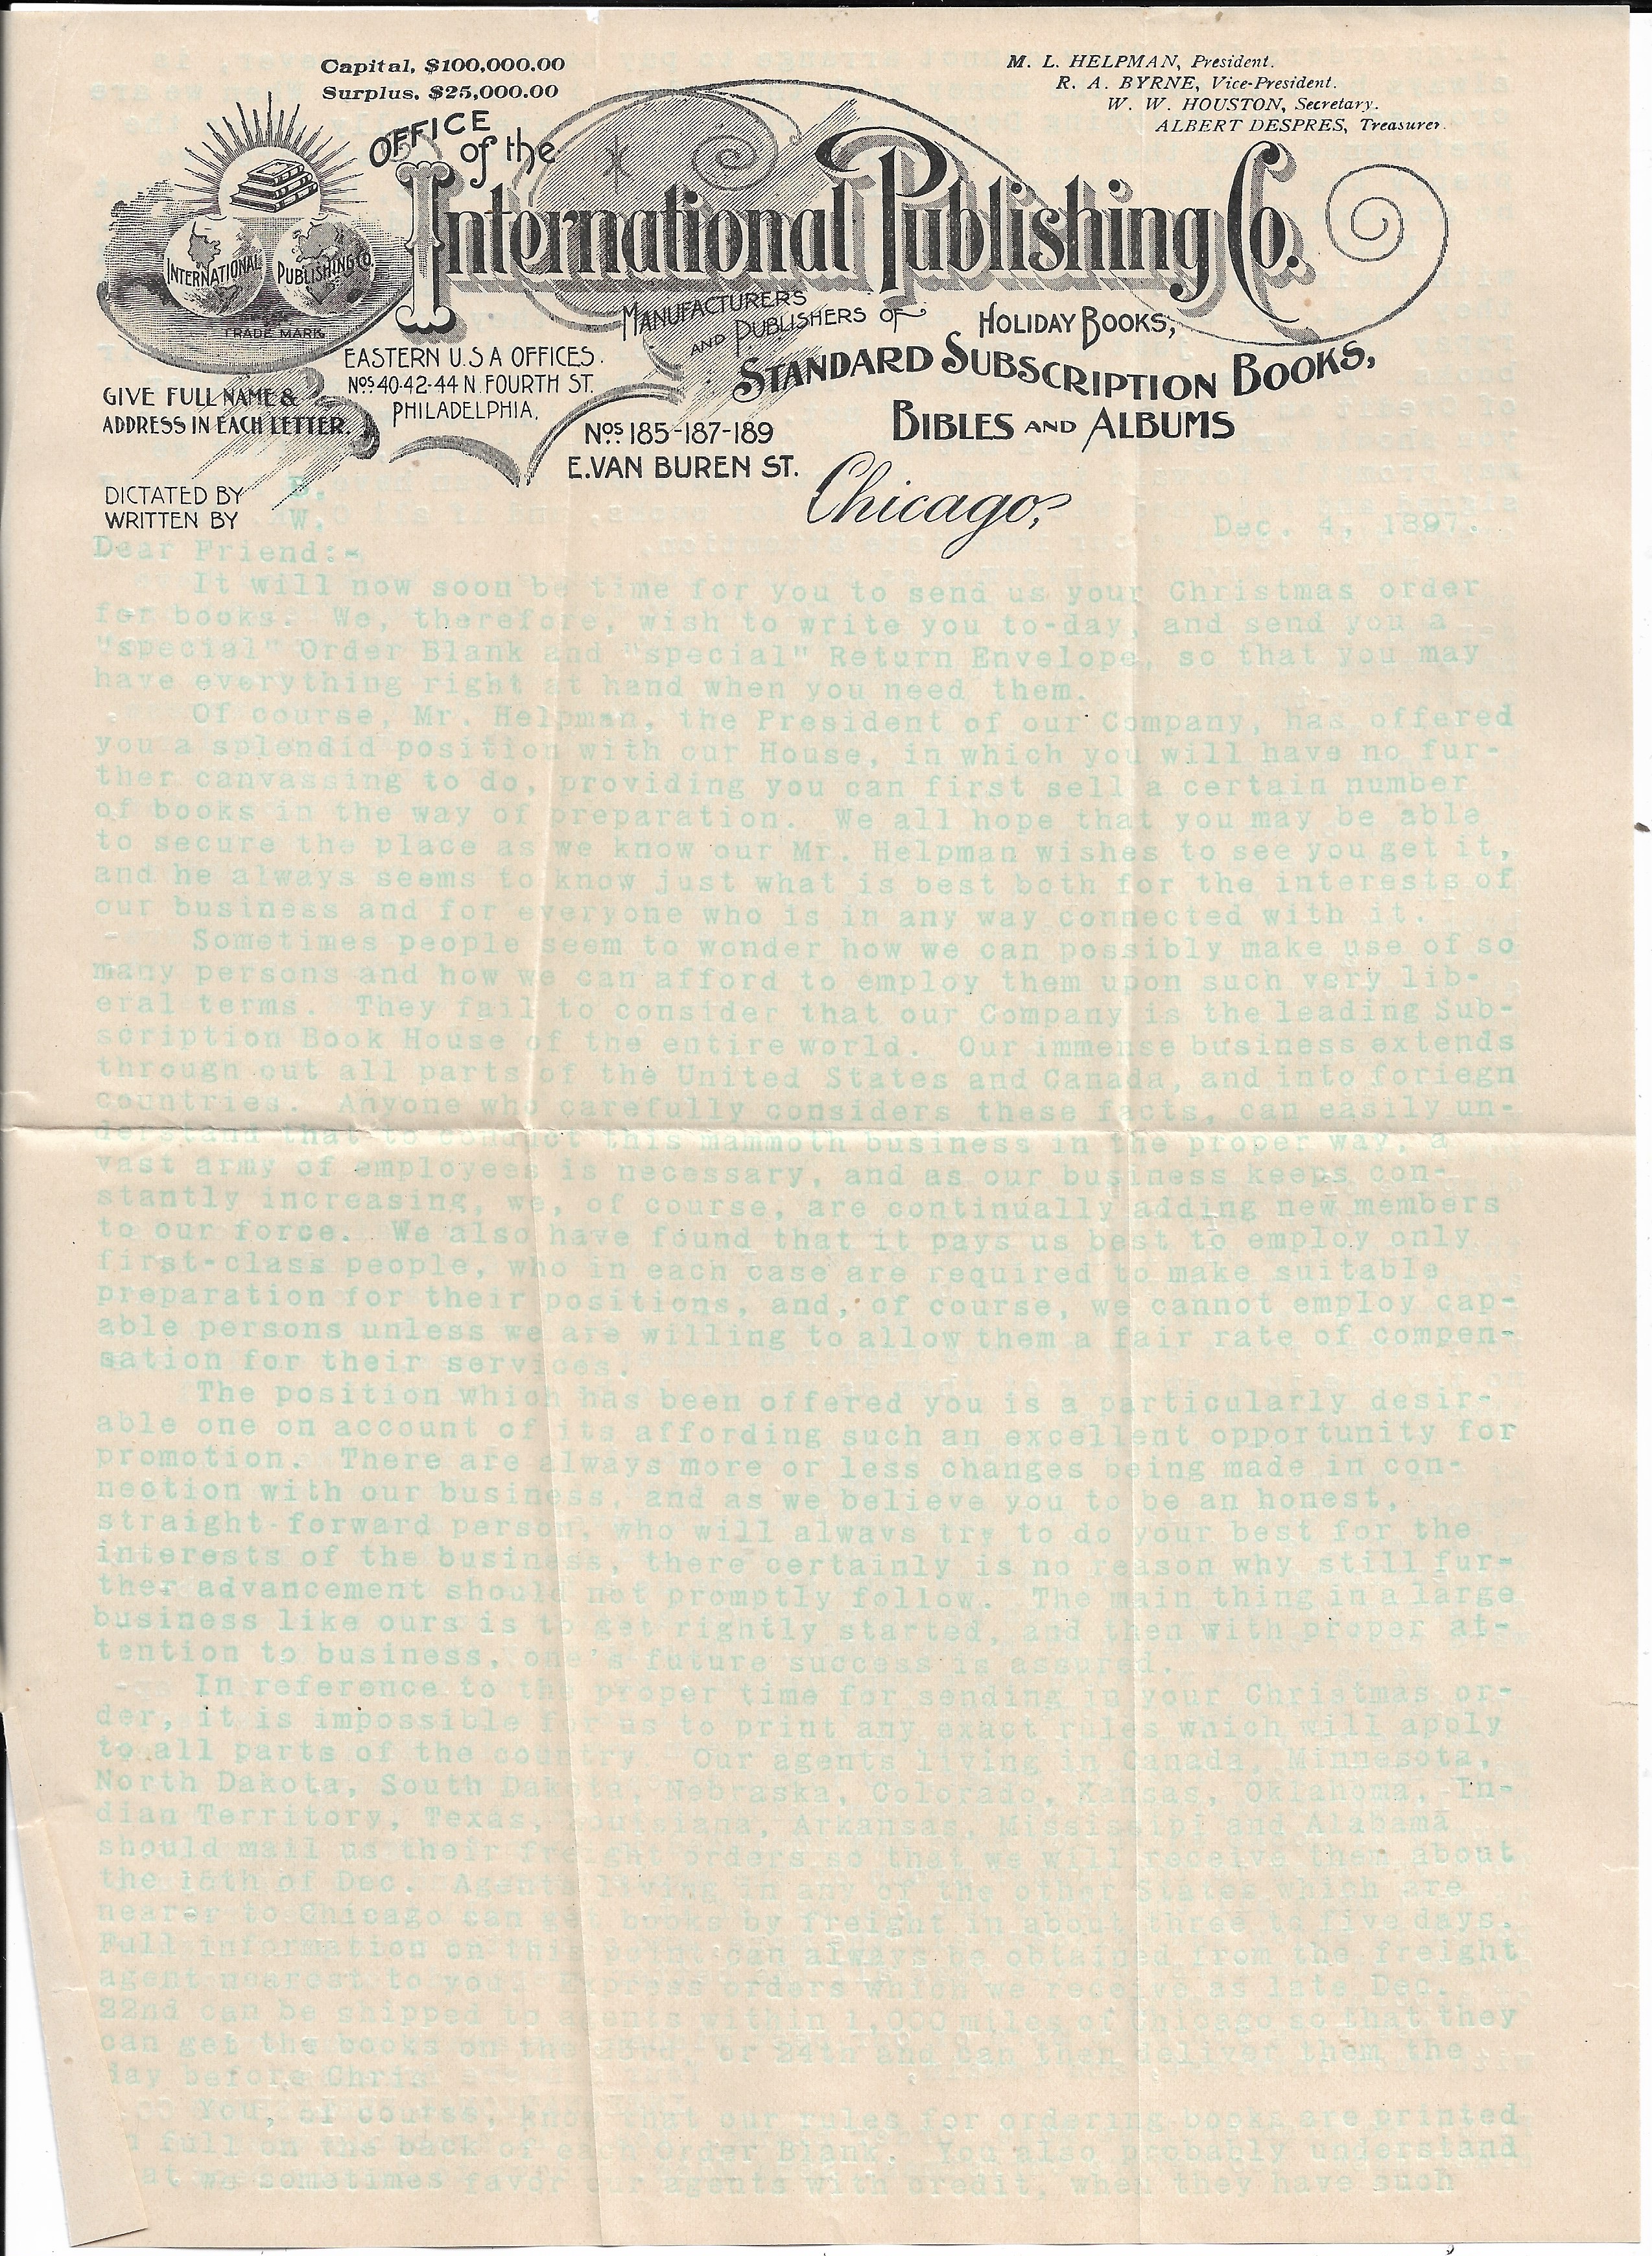 Capital, $100,000.00
Surplus, $25,000.00
M. L. HELPMAN, President.
R. A. BYRNE, Vice-President.
W. W. HOUSTON, Secretary.
ALBERT DESPRES, Treasurer.
OFFICE
of the
International Publishing Co.
INTERNATIONAL
PUBLISHING CO.
TRADE MARK
MANUFACTURERS
AND PUBLISHERS OF
HOLIDAY BOOKS,
STANDARD SUBSCRIPTION BOOKS,
BIBLES AND ALBUMS
EASTERN U.S.A OFFICES.
Nos 40-42-44 N. FOURTH ST.
PHILADELPHIA.
GIVE FULL NAME &
ADDRESS IN EACH LETTER.
Nos 185-187-189
E. VAN BUREN ST.
Chicago,
DICTATED BY B.
WRITTEN BY W.
Dec. 4, 1897.
Dear Friend:-
It will now soon be time for you to send us your Christmas order
for books. We, therefore, wish to write you to-day, and send you a
"special" Order Blank and "special" Return Envelope, so that you may
have everything right at hand when you need them.
Of course, Mr. Helpman, the President of our Company, has offered
you a splendid position with our House, in which you will have no fur-
ther canvassing to do, providing you can first sell a certain number
of books in the way of preparation. We all hope that you may be able
to secure the place as we know our Mr. Helpman wishes to see you get it,
and he always seems to know just what is best both for the interests of
our business and for everyone who is in any way connected with it.
Sometimes people seem to wonder how we can possibly make use of so
many persons and how we can afford to employ them upon such very lib-
eral terms. They fail to consider that our Company is the leading Sub-
scription Book House of the entire world. Our immense business extends
through out all parts of the United States and Canada, and into foriegn
countries. Anyone who carefully considers these facts, can easily un-
derstand that to conduct this mammoth business in the proper way, a
vast army of employees is necessary, and as our business keeps con-
stantly increasing, we, of course, are continually adding new members
to our force. We also have found that it pays us best to employ only
first-class people, who in each case are required to make suitable
preparation for their positions, and, of course, we cannot employ cap-
able persons unless we are willing to allow them a fair rate of compen-
sation for their services.
The position which has been offered you is a particularly desir-
able one on account of its affording such an excellent opportunity for
promotion. There are always more or less changes being made in con-
nection with our business, and as we believe you to be an honest,
straight-forward person, who will always try to do your best for the
interests of the business, there certainly is no reason why still fur-
ther advancement should not promptly follow. The main thing in a large
business like ours is to get rightly started, and then with proper at-
tention to business, one's future success is assured.
In reference to the proper time for sending in your Christmas or-
der, it is impossible for us to print any exact rules which will apply
to all parts of the country. Our agents living in Canada, Minnesota,
North Dakota, South Dakota, Nebraska, Colorado, Kansas, Oklahoma, In-
dian Territory, Texas, Louisiana, Arkansas, Mississippi and Alabama
should mail us their freight orders so that we will receive them about
the 15th of Dec. Agents living in any of the other States which are
nearer to Chicago can get books by freight in about three to five days.
Full information on this point can always be obtained from the freight
agent nearest to you. Express orders which we receive as late Dec.
22nd can be shipped to agents within 1,000 miles of Chicago so that they
can get the books on the 23rd, or 24th and can then deliver them the
day before Chris
You, of course, know that our rules for ordering books are printed
full on the back of each Order Blank. You also probably understand
at we sometimes favor our agents with credit, when they have such